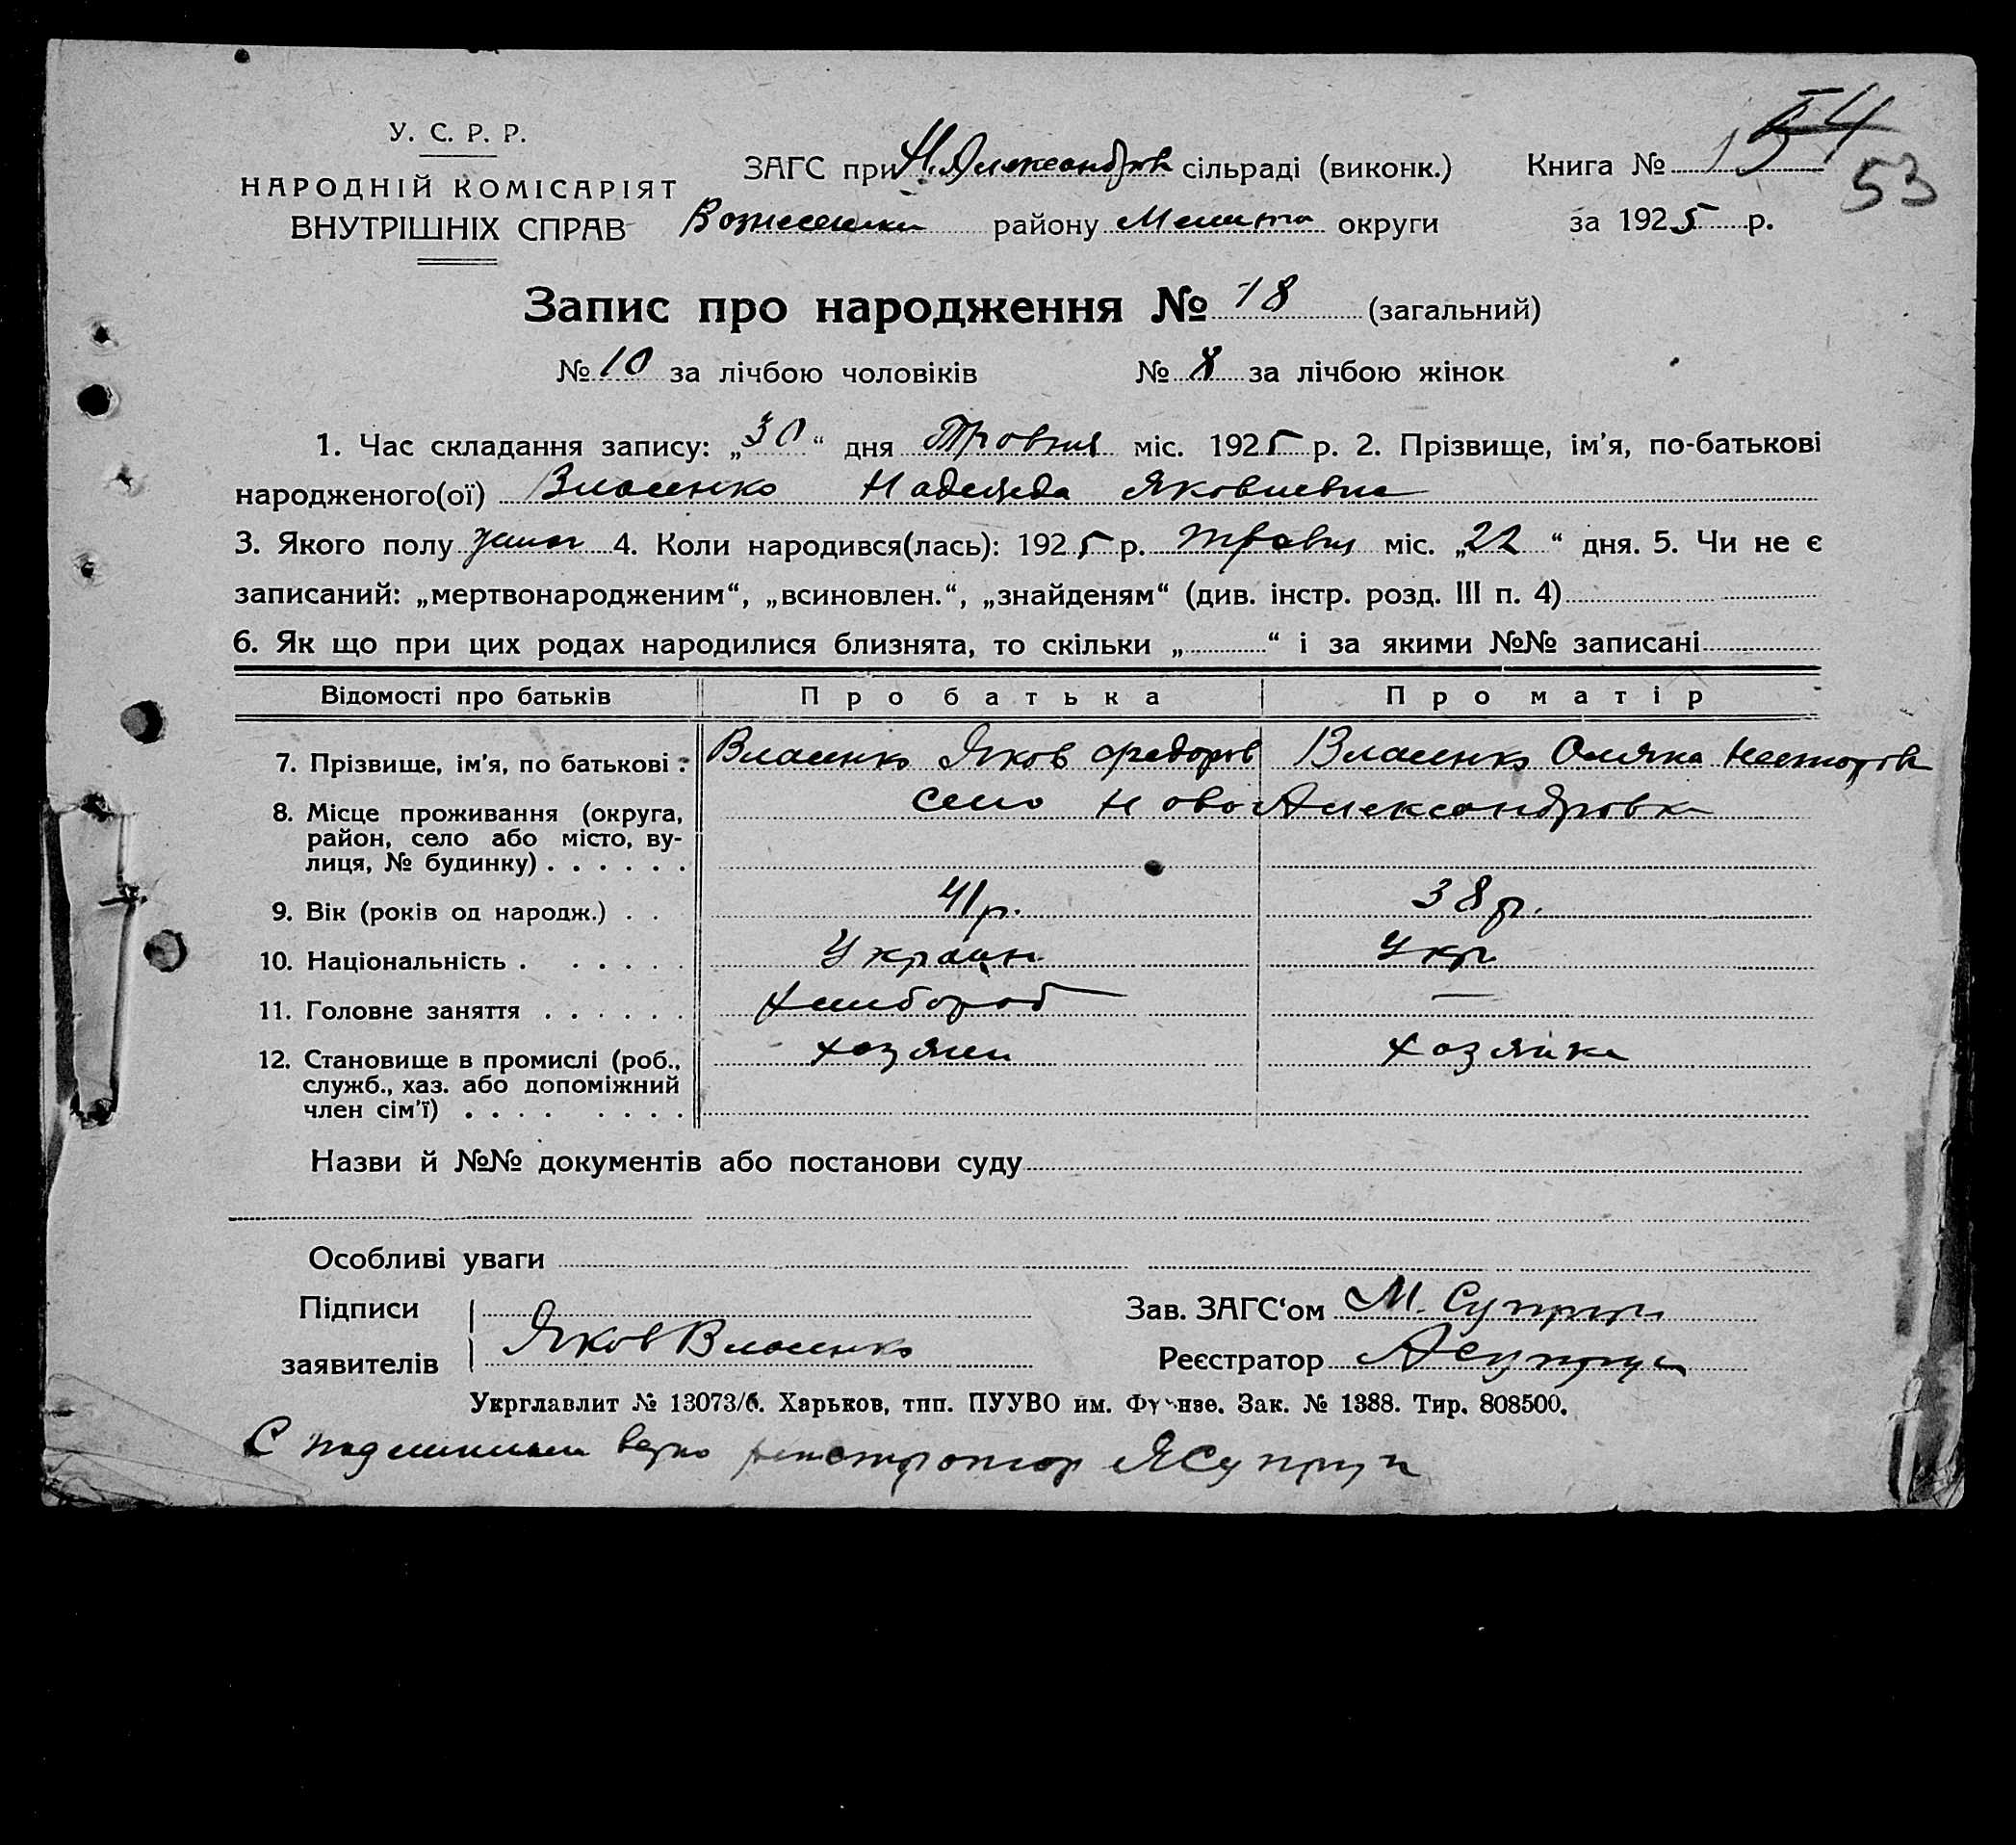 У. С. Р. Р.
НАРОДНІЙ КОМІСАРІЯТ
ВНУТРІШНІХ СПРАВ
ЗАГС при Н. Александров сільраді (виконк.)
районy округи
Книга № 1 54
53
за 1925 р.
Запис про народження № 18 (загальний)
№ 10 за лічбою чоловіків № 8 за лічбою жінок
1. Час складання запису: „30“ дня Травня міс. 1925 р. 2. Прізвище, ім'я, по-батькові
народженого(ої) Власенко Надежда Яковлевна
3. Якого полу 4. Коли народився(лась): 1925 р. травня міс. „22“ дня. 5. Чи не є
записаний: „мертвонародженим“, „всиновлен.“, „знайденям“ (див. інстр. розд. III п. 4)
6. Як що при цих родах народилися близнята, то скільки „ “ і за якими №№ записані
Відомості про батьків Про батька Про матір
7. Прізвище, ім'я, по батькові: Власенко Яков Федоров Власенко Несторов
8. Місце проживання (округа, район, село або місто, вулиця, № будинку) село Ново Александровка
9. Вік (років од народж.) 41 р. 38 р.
10. Національність Україн. Укр
11. Головне заняття Хлібороб —
12. Становище в промислі (роб., служб., хаз. або допоміжний член сім'ї) хозяин хозяйка
Назви й №№ документів або постанови суду
Особливі уваги
Підписи заявителів Яков Власенко
Зав. ЗАГС'ом М. Супрун
Реєстратор А Супрун
Укрглавлит № 13073/б. Харьков, тип. ПУУВО им. Фрунзе. Зак. № 1388. Тир. 808500.
С подлинным верно регистратор ЯСупрун